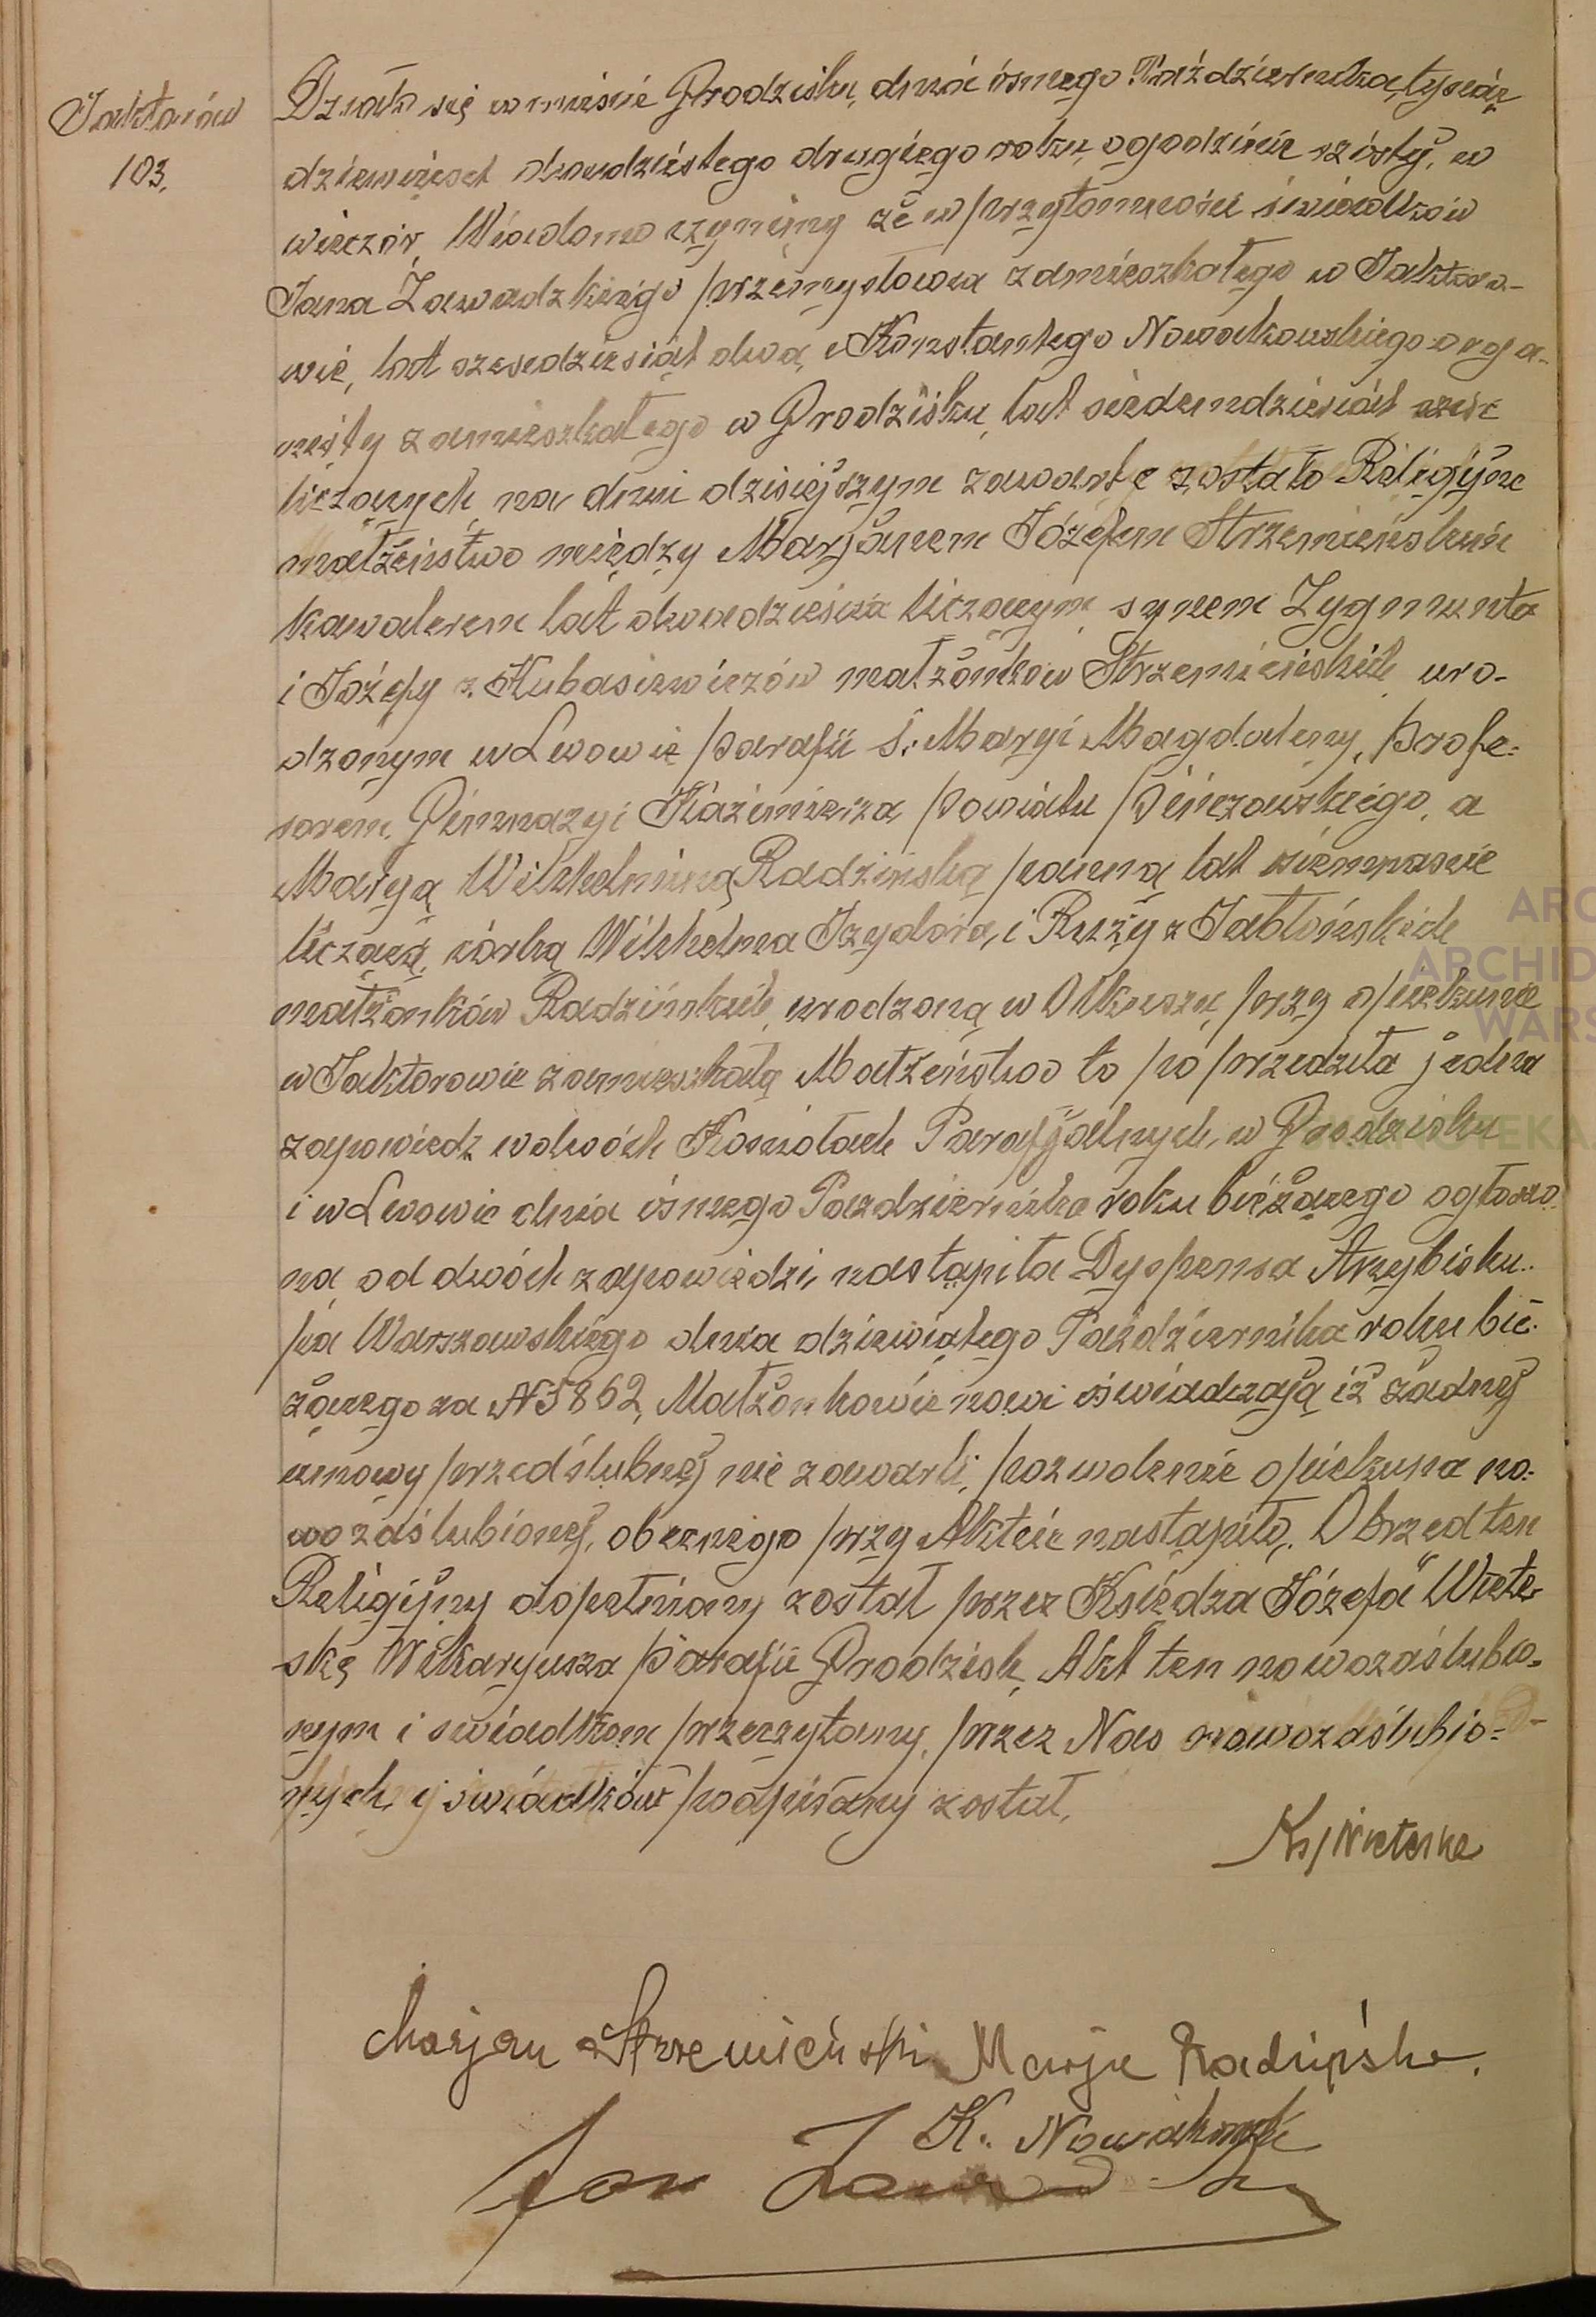 Jaktorów
103.
Działo się w mieście Grodzisku, dnia ósmego Października, tysiąc
dziewięćset dwudziestego drugiego roku, o godzinie szóstej, w
wieczór, Wiadomo czynimy że w przytomności świadków
Jana Zawadzkiego przemysłowca zamieszkałego w Jaktoro-
wie, lat sześćdziesiąt dwa, Konstantego Nowakowskiego orga-
nisty zamieszkałego w Grodzisku, lat siedemdziesiąt sześć
liczących na dniu dzisiejszym zawarte zostało Religijne
małżeństwo między Marjanem Józefem Strzemieńskim
kawalerem lat dwadzieścia liczącym, synem Zygmunta
i Józefy z Kubasiewiczów małżonków Strzemieńskich uro-
dzonym w Lwowie parafii Ś: Maryi Magdaleny, profe-
sorem Gimnazyi Kazimierza powiatu pińczowskiego, a
Maryą Wilhelminą Radzińską panną lat siemnaście
liczącą, córką Wilhelma Izydora, i Ruży z Jabłońskich
małżonków Radzińskich, urodzoną w Olkuszu, przy opiekunie
w Jaktorowie zamieszkałą Małżeństwo to poprzedziła jedna
zapowiedz w dwóch Kosciołach Parafijalnych, w Grodzisku
i w Lwowie dnia ósmego Pazdziernika roku bieżącego ogłoszo-
na, od dwóch zapowiedzi, nastąpiła Dyspensa Arcybisku-
pa Warszawskiego dnia dziewiątego Października roku bie-
żącego za N 5862, Małżonkowie nowi oświadczają iż żadnej
umowy przedślubnej nie zawarli, pozwolenie opiekuna no-
wozaślubionej, obecnego przy Akteie nastąpiło. Obrzęd ten
Religijny dopełniony został przez Księdza Józefa Wiete-
skę Wikaryusza parafii Grodzisk, Akt ten nowozaślubio-
nym i swiadkom przeczytany, przez Nas nowozaślubio-
nych, i świadków podpisany został.
Ks J Wieteska
Marjan Strzemieński Marja Radzińska.
K. Nowakowski
Jan Zawadzki
ARC
ARCHID
WARS
SKANOTEKA